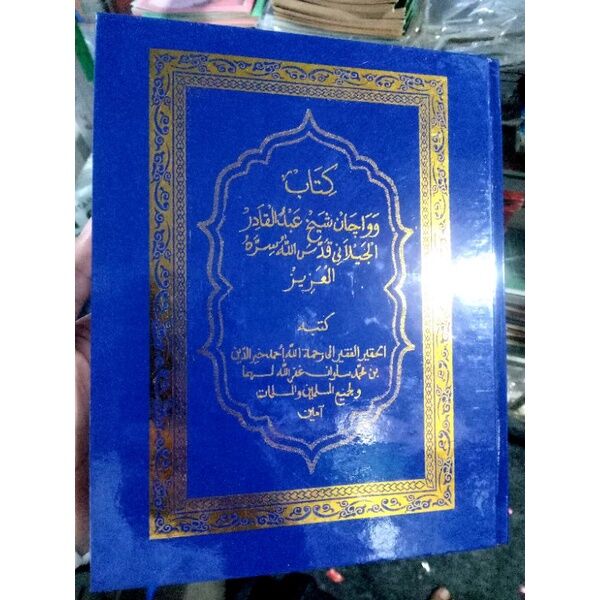 كِتَابْ
وَوَاچَانْ شَيْخْ عَبْدُ الْقَادِرْ
الْجَيْلَانِي قَدَّسَ اللّٰهُ سِرَّهُ
الْعَزِيزْ
كتبه
الحقير الفقير الى رحمة الله أحمد خير الدين
بن محمد سلوان غفر الله لهما
ولجميع المسلمين والمسلمات
آمين